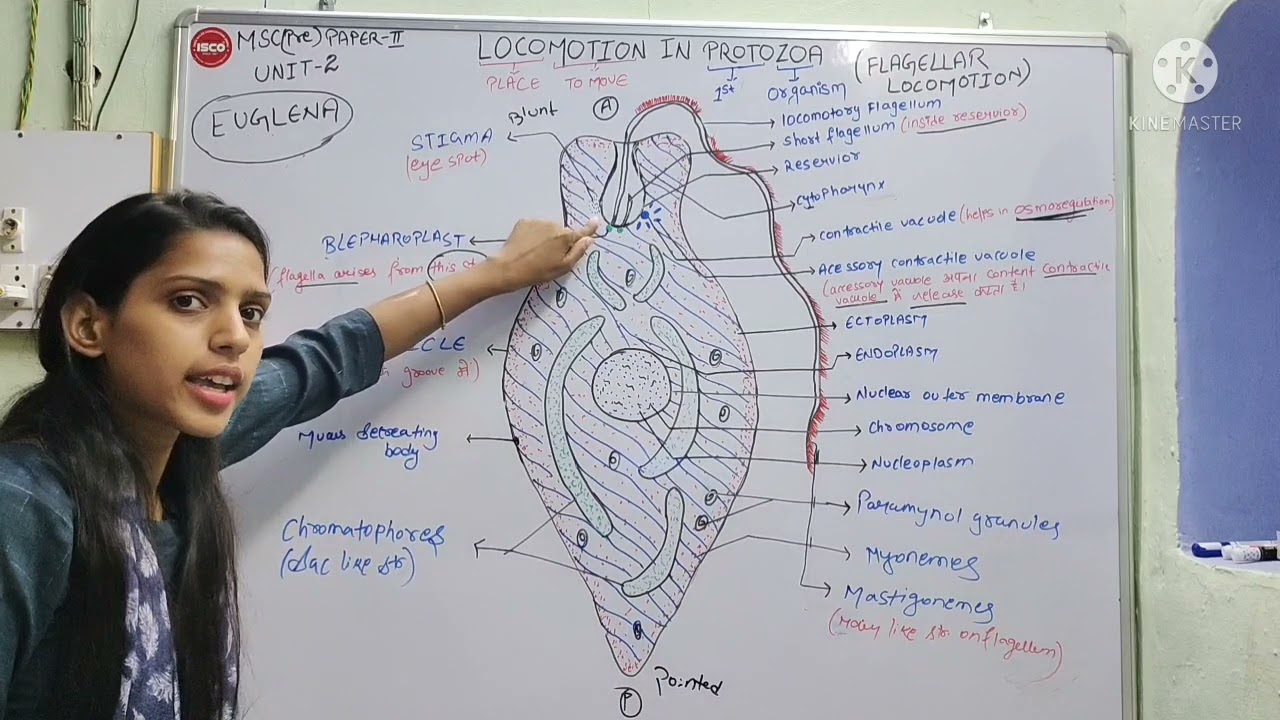 ISCO
MSC(Pre) PAPER-II
UNIT-2
EUGLENA
LOCOMOTION IN PROTOZOA (FLAGELLAR
LOCOMOTION)
PLACE TO MOVE 1st Organism
KINEMASTER
Blunt
A
STIGMA
(eye spot)
BLEPHAROPLAST
(flagella arises from this st
CLE
groove में)
Mucus Secreating
body
Chromatophores
(Sac like str)
locomotory Flagellum
Short flagellum (inside reservior)
Reservior
Cytopharynx
contractile vacuole (helps in osmoregulation)
Acessory contractile vacuole
(accessory vacuole अपना content contractile
vacuole में release करता है।
ECTOPLASM
ENDOPLASM
Nuclear outer membrane
chromosome
Nucleoplasm
Paramynol granules
Myonemes
Mastigonemes
like str on flagellum)
Pointed
P